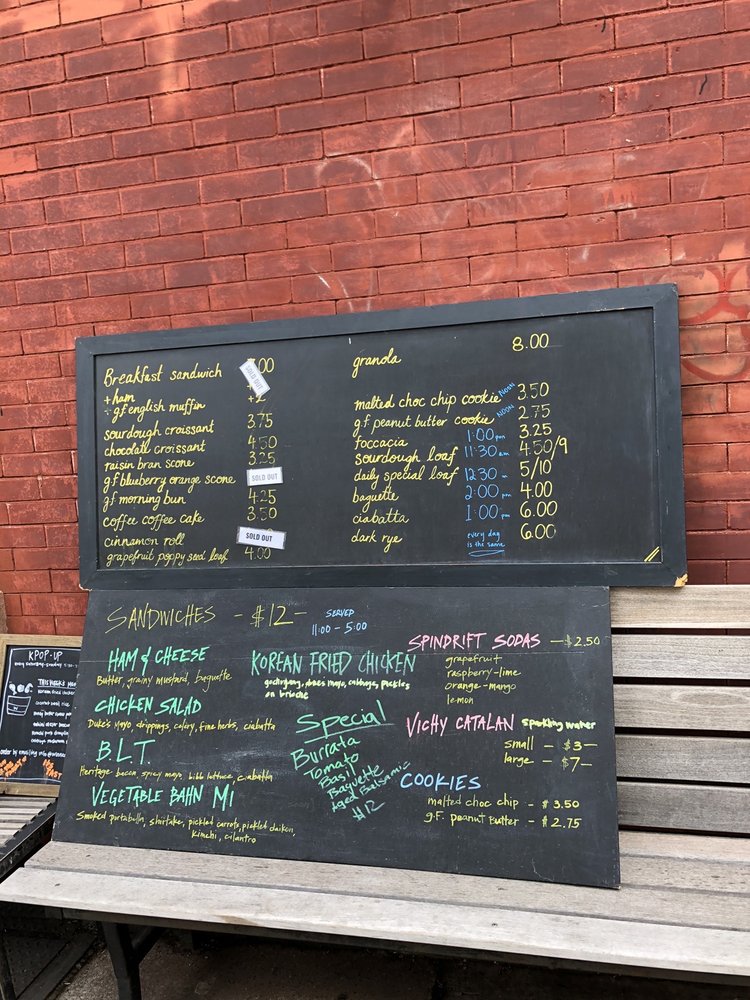 Breakfast sandwich .00
SOLD OUT
+ ham +2
+ g.f english muffin
sourdough croissant 3.75
chocolate croissant 4.50
raisin bran scone 3.25
gf blueberry orange scone SOLD OUT
g.f morning bun 4.25
coffee coffee cake 3.50
cinnamon roll SOLD OUT
grapefruit poppy seed loaf 4.00
granola 8.00
malted choc chip cookie NOON 3.50
g.f peanut butter cookie NOON 2.75
foccacia 1:00 pm 3.25
sourdough loaf 11:30 am 4.50/9
daily special loaf 12:30 5/10
baguette 2:00 pm 4.00
ciabatta 1:00 pm 6.00
dark rye every day is the same 6.00
SANDWICHES - $12 -
SERVED
11:00 - 5:00
HAM & CHEESE
Butter, grainy mustard, baguette
CHICKEN SALAD
Duke's Mayo drippings, celery, fine herbs, ciabatta
B.L.T.
Heritage bacon, spicy mayo, bibb lettuce, ciabatta
VEGETABLE BAHN Mi
Smoked portabella, shiitake, pickled carrots, pickled daikon,
kimchi, cilantro
KOREAN FRIED CHICKEN
gochujang, mayo, cabbage, pickles
on brioche
Special
Burrata
Tomato
Basil
Baguette
Aged Balsamic
$12
SPINDRIFT SODAS - $2.50
grapefruit
raspberry-lime
orange-mango
lemon
VICHY CATALAN sparkling water
small - $3 -
large - $7 -
COOKIES
malted choc chip - $3.50
g.f. peanut butter - $2.75
KPOP-UP
THIS WEEK'S